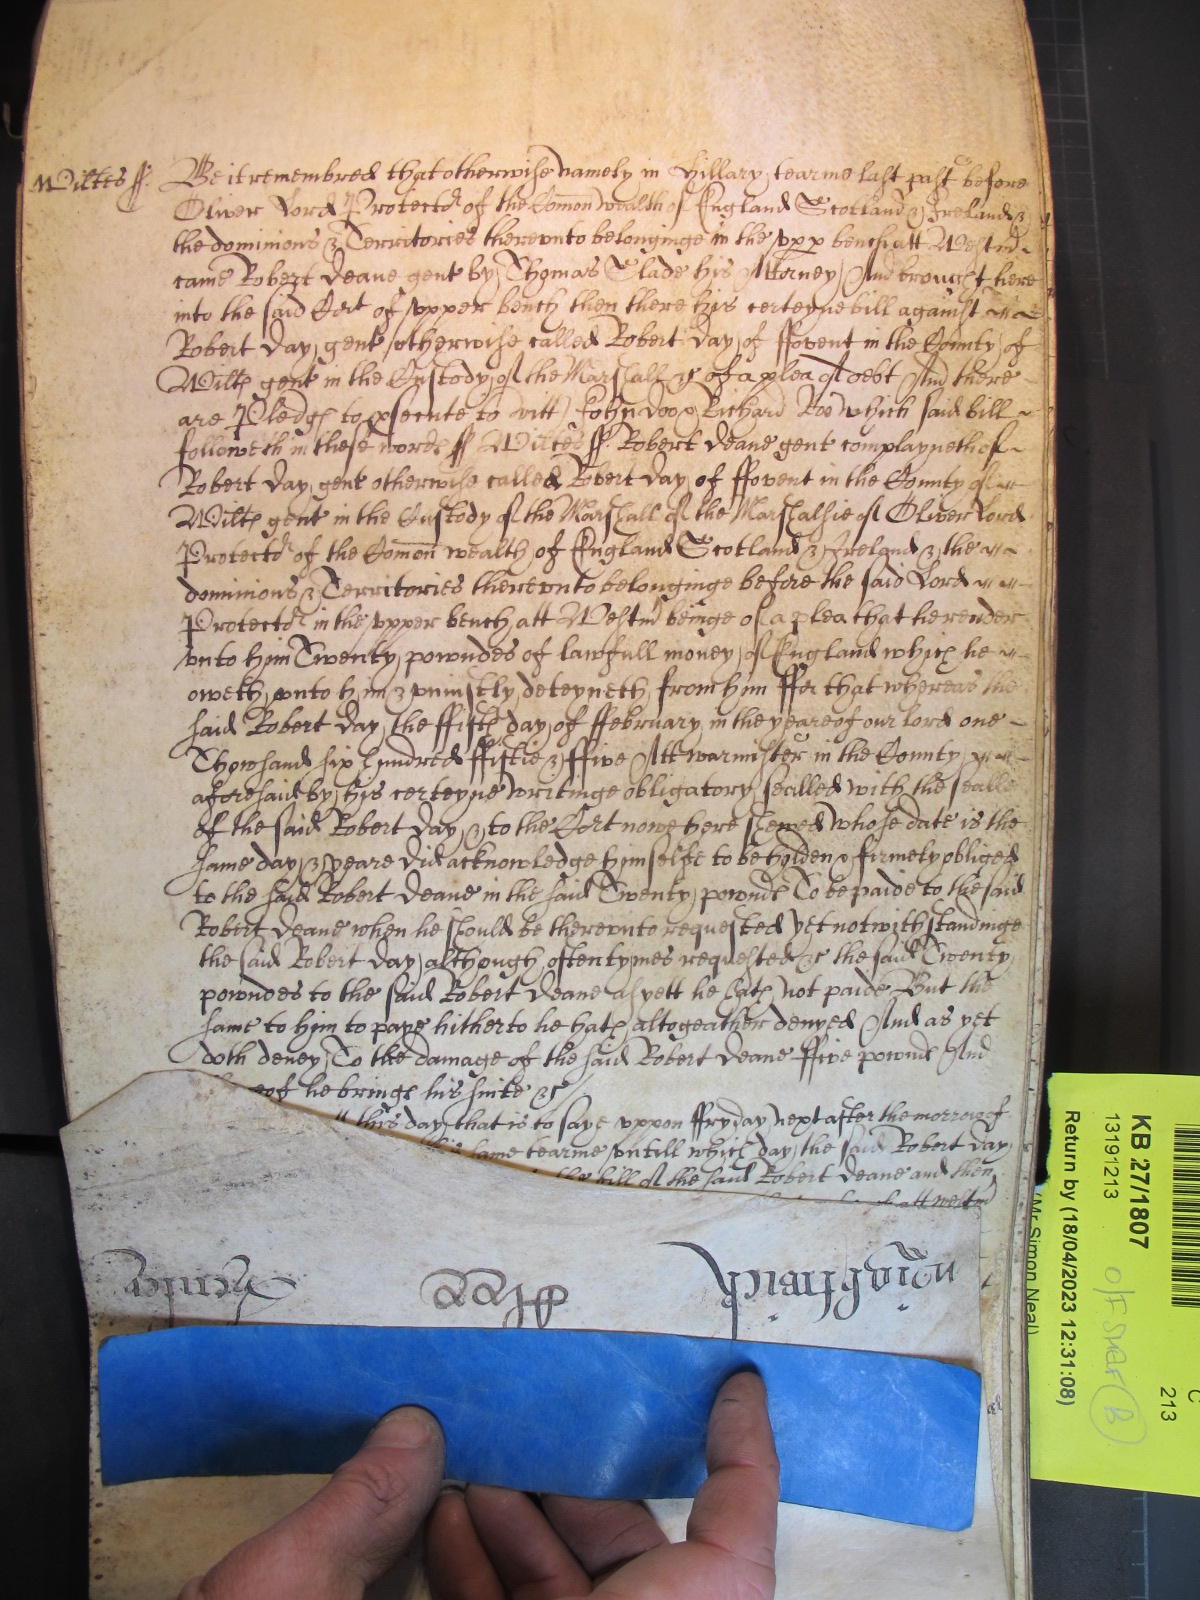 Wiltes ss. Be it remembred that otherwise namely in Hillary tearme last past before
Oliver Lord Protector of the Comon wealth of England Scotland & Ireland &
the dominions & Territories therevnto belonginge in the vpp bench att Westm
came Robert Deane gent by Thomas Slade his Attorney And brought there
into the said Cort of vpper bench then there his certeyne bill against
Robert Day gent otherwise called Robert Day of ffovent in the County of
Wiltes gent in the Custody of the Marshall &c of a plea of debt And there
are Pledges to psecute to witt John doo & Richard Roo which said bill
followeth in these wordes ss Wiltes ss. Robert Deane gent complayneth of
Robert Day gent otherwise called Robert Day of ffovent in the County of
Wiltes gent in the Custody of the Marshall of the Marshalsie of Oliver Lord
Protector of the Comon wealth of England Scotland & Ireland & the
dominions & Territories therevnto belonginge before the said Lord
Protector in the vpper bench att Westm beinge of a plea that he render
vnto him Twenty powndes of lawfull money of England which he
oweth vnto him & vniustly deteyneth from him ffor that whereas the
said Robert Day the ffifth day of ffebruary in the yeare of our lord one
Thowsand six hundred ffiftie & ffive Att warmister in the County
aforesaid by his certeyne writinge obligatory sealled with the sealle
of the said Robert Day & to the Cort nowe here shewed whose date is the
same day & yeare did acknowledge himselfe to be holden & firmely obliged
to the said Robert Deane in the said Twenty powndes To be paide to the said
Robert Deane when he should be therevnto requested Yet notwithstandinge
the said Robert Day although oftentymes requested &c the said Twenty
powndes to the said Robert Deane as yett he hath not paide But the
same to him to paye hitherto he hath altogeather denyed And as yet
doth deney To the damage of the said Robert Deane ffive powndes And
eof he bringes his suite &c
this day that is to saye vppon ffryday next after the morrow of
same tearme vntill which day the said Robert Day
the bill of the said Robert Deane and then
att westm
KB 27/1807
13191213
Return by (18/04/2023 12:31:08)
(Mr Simon Neal)
C
213
B